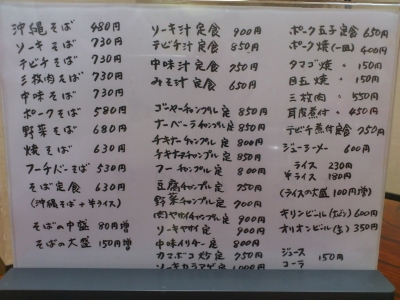 沖縄そば 480円
ソーキそば 730円
テビチそば 730円
三枚肉そば 730円
中味そば 730円
ポークそば 580円
野菜そば 680円
焼そば 630円
フーチバーそば 530円
そば定食 630円
(沖縄そば+半ライス)
そばの中盛 80円増
そばの大盛 150円増
ソーキ汁定食 900円
テビチ汁定食 850円
中味汁定食 750円
みそ汁定食 650円
ゴーヤーチャンプル定 850円
ナーベーラチャンプル定 850円
チキナーチャンプル定 800円
チキナマフチャンプル定 750円
フーチャンプル定 800円
豆腐チャンプル定 750円
野菜チャンプル定 700円
(肉)ヤサイチャンプル定 900円
ソーキヤサイ定 900円
中味イリチー定 800円
カマボコ炒定 750円
ソーキカラアゲ定
ポーク玉子定食 650円
ポーク焼(一皿) 400円
タマゴ焼 〃 150円
目玉焼 〃 150円
三枚肉 〃 550円
耳皮煮付 〃 450円
テビチ煮付定食 750円
ジューシーメー 600円
ライス 230円
半ライス 180円
(ライスの大盛100円増)
キリンビール 600円
オリオンビール 350円
ジュース
コーラ 150円